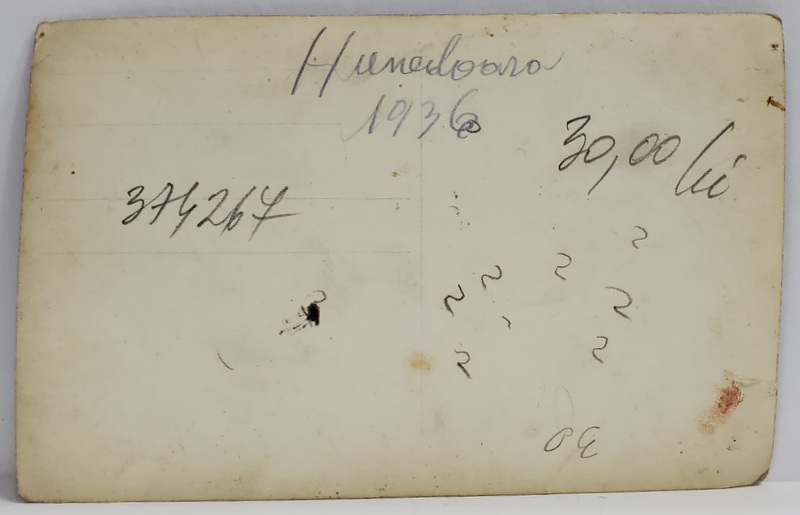 Hunedoara
1936
30,00 lei
374267
30